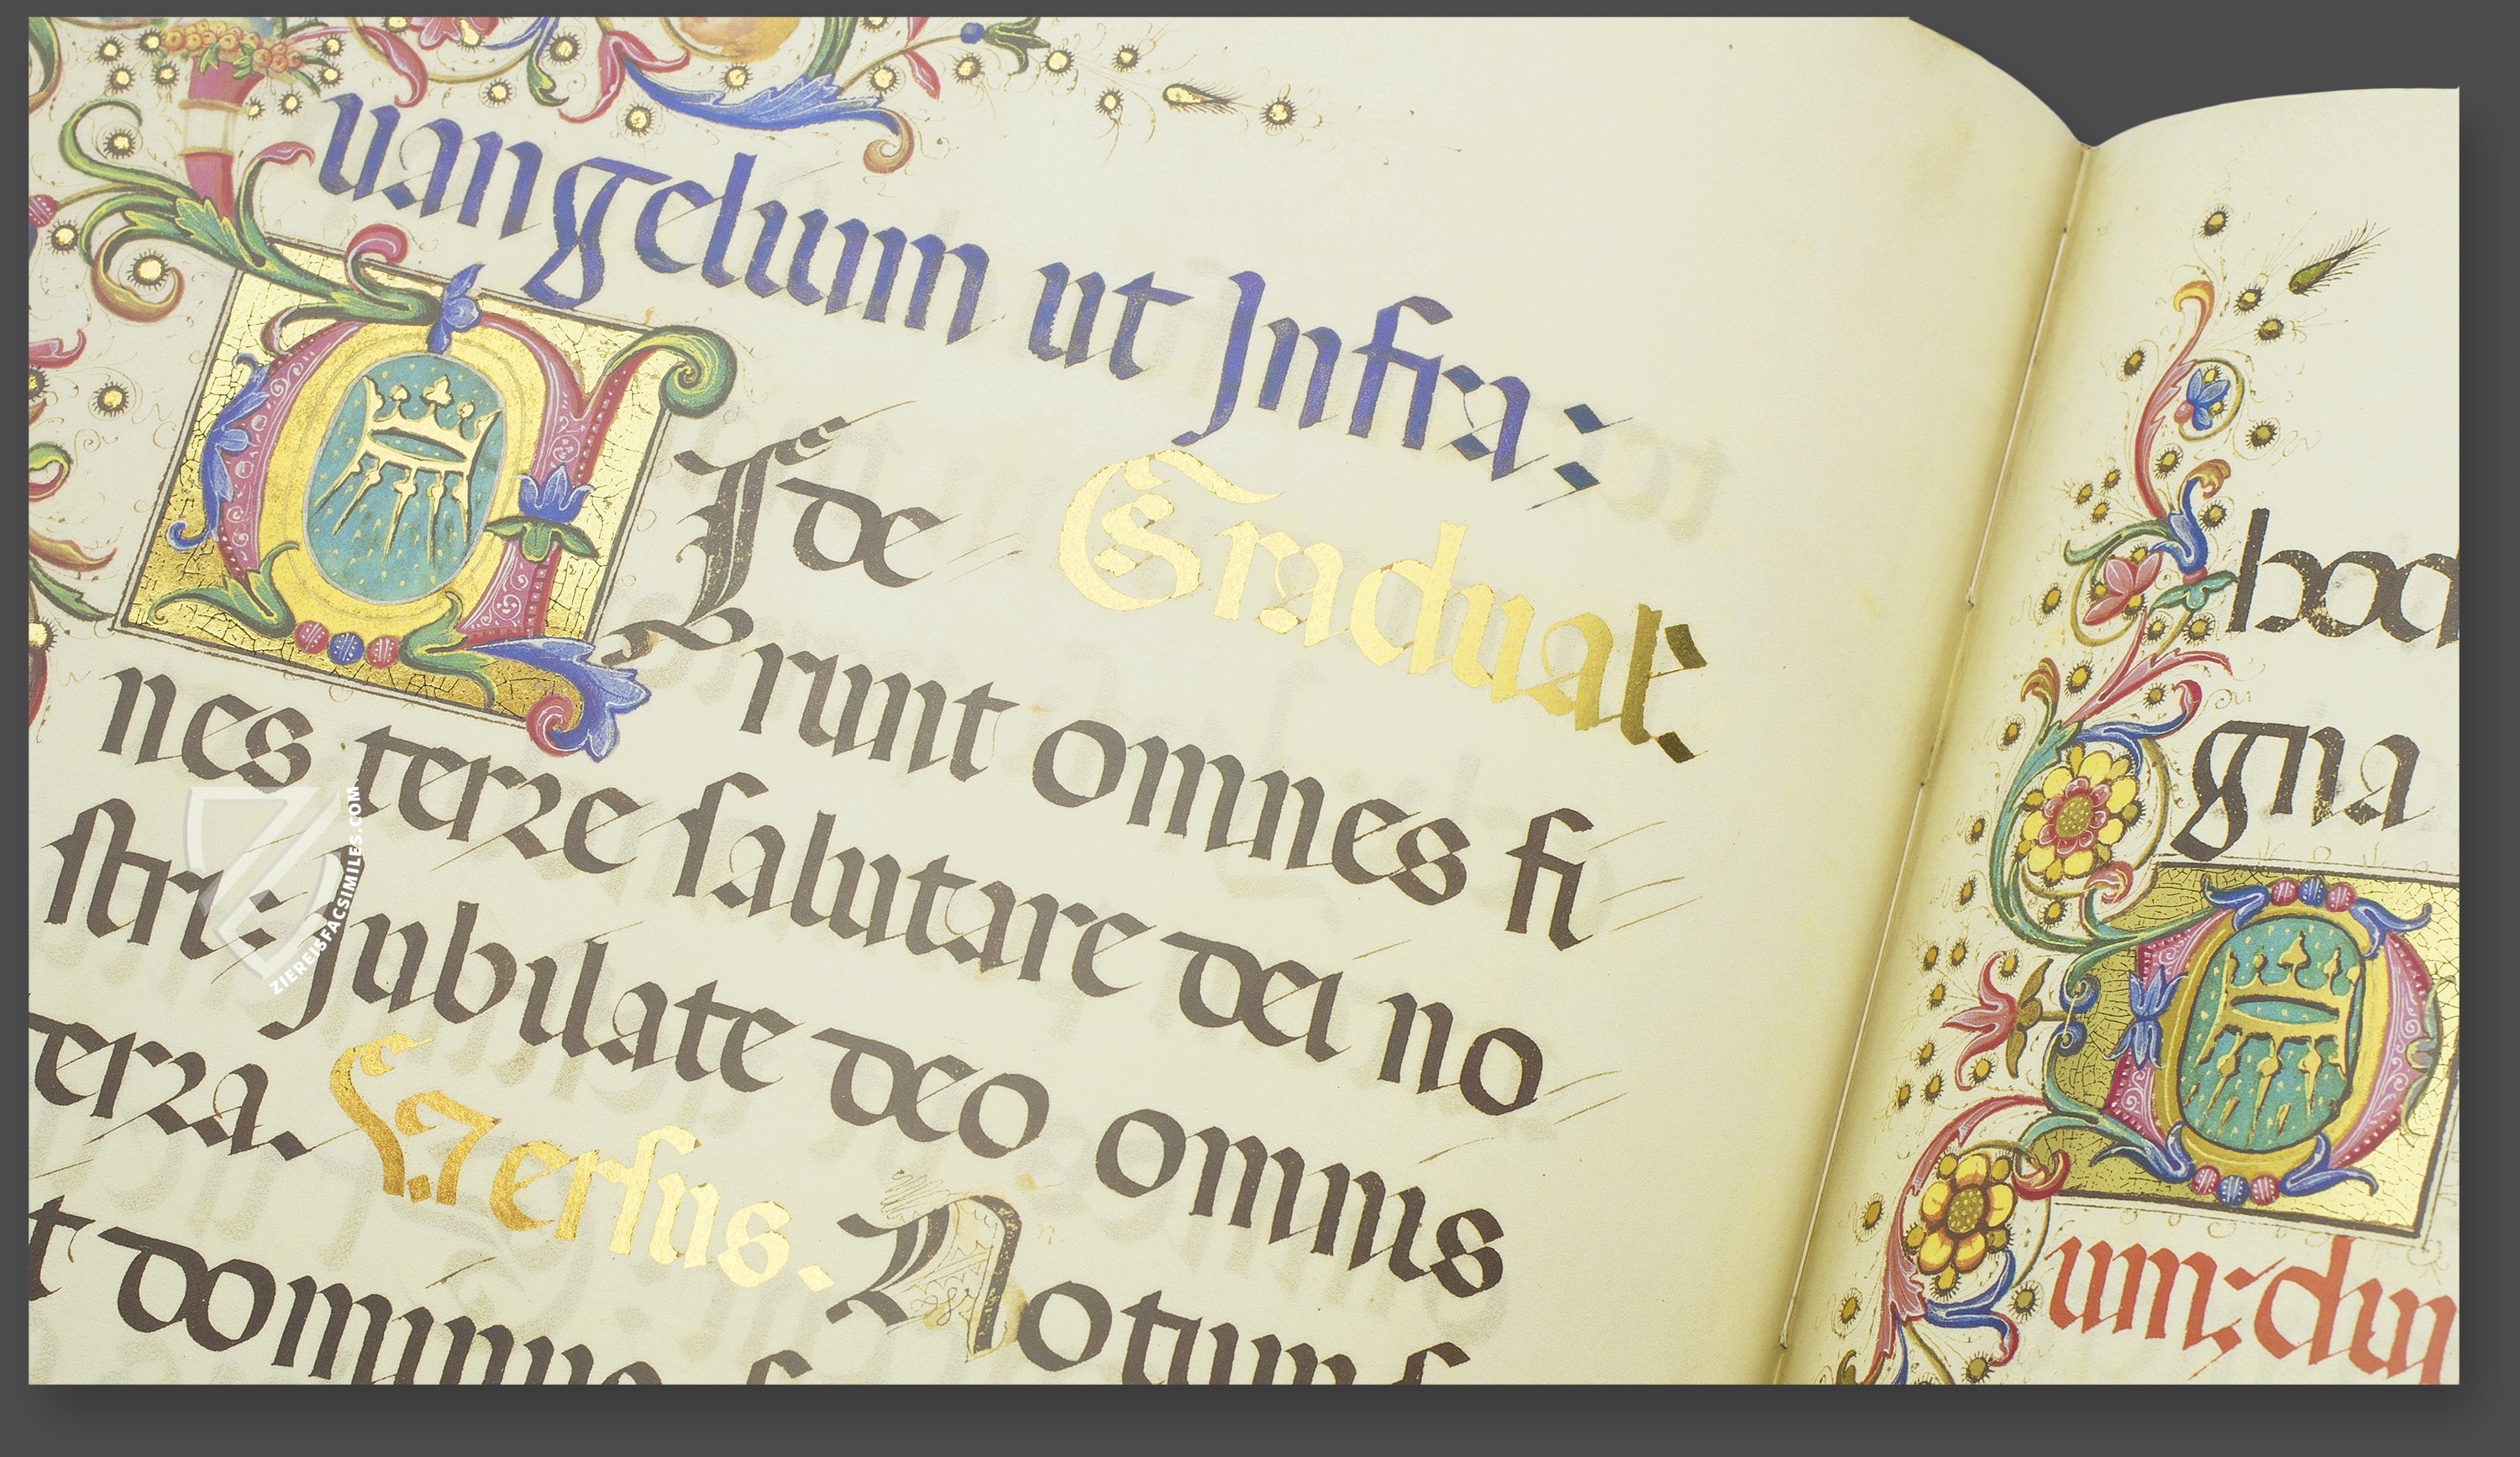 uangelium ut Infra:
V Ide Gradual'
runt omnes fi
nes terre salutare dei no
stri: Jubilate deo omnis
terra. Versus. Notum f
t dominus s
hod
gna
um: diu
ZIEREISFACSIMILES.COM